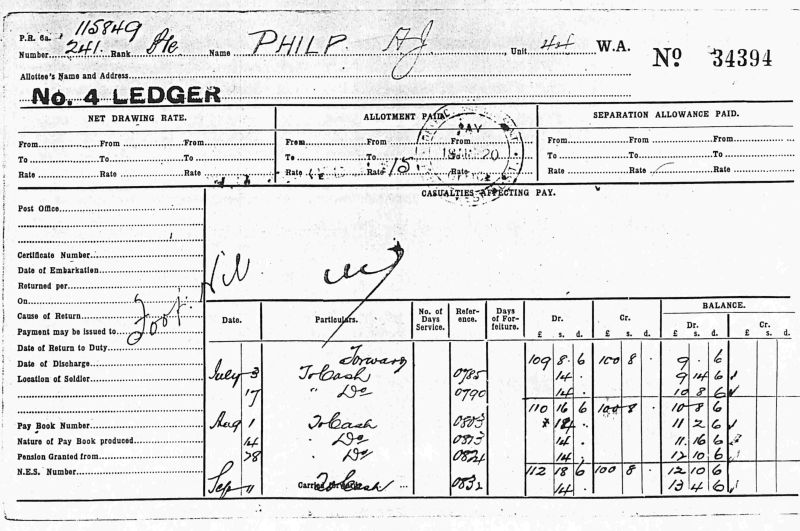 P.R. 6a. 115849
Number 241. Rank Pte Name PHILP. A J. Unit 44 W.A. No 34394
Allottee's Name and Address
No. 4 LEDGER
NET DRAWING RATE. ALLOTMENT PAID. SEPARATION ALLOWANCE PAID.
From From From From From From From
To To To To To To To
Rate Rate Rate Rate 15 Rate Rate Rate
PAY
20
CASUALTIES AFFECTING PAY.
Post Office
Certificate Number
Date of Embarkation
Returned per
On
Cause of Return
Payment may be issued to
Date of Return to Duty
Date of Discharge
Location of Soldier
Pay Book Number
Nature of Pay Book produced
Pension Granted from
N.E.S. Number
Foot. Nil
Date. Particulars. No. of Days Service. Reference. Days of Forfeiture. Dr. £ s. d. Cr. £ s. d. BALANCE. Dr. £ s. d. Cr. £ s. d.
Forward 109 8 6 100 8 . 9 . 6
July 3 To Cash 0785 14 . 9 14 6
17 " Do 0790 14 . 10 8 6
110 16 6 100 8 . 10 8 6
Aug 1 To Cash 0803 14 . 11 2 6
14 " Do 0813 14 . 11 16 6
28 " Do 0824 14 . 12 10 6
112 18 6 100 8 . 12 10 6
Sep 11 To Cash 0832 14 . 13 4 6
Carried forward